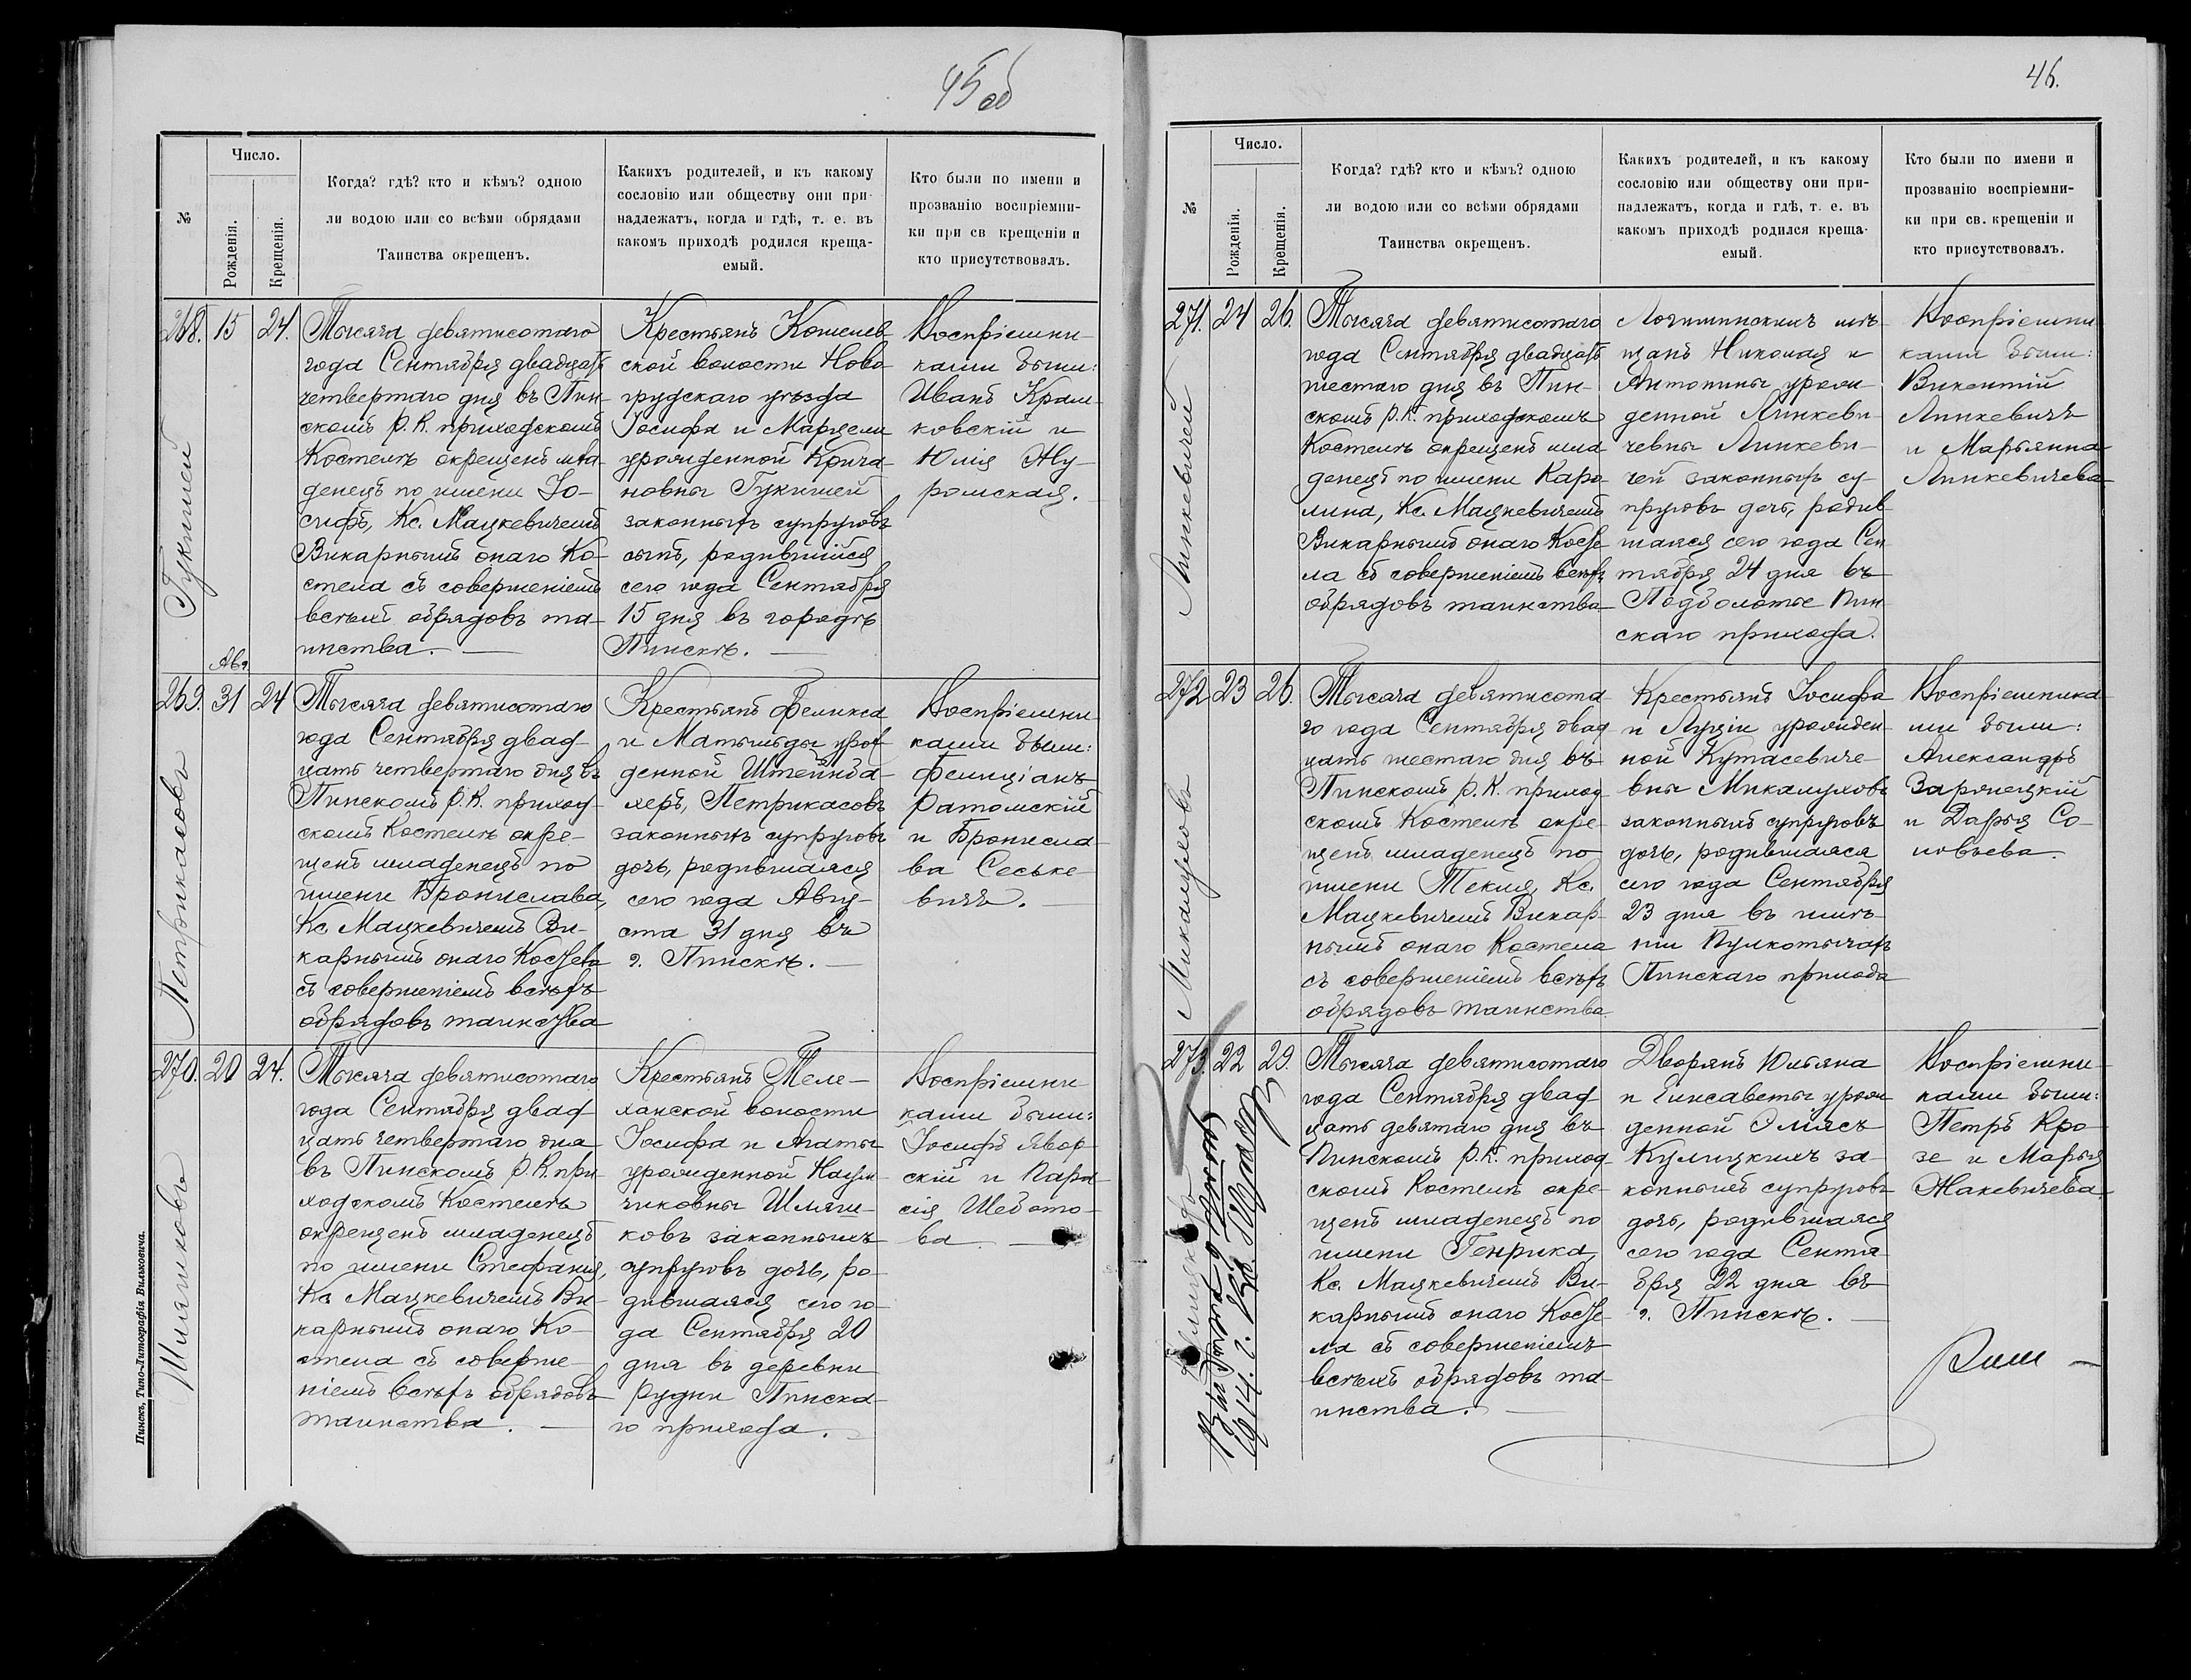 45 об
Число.
№
Рожденія.
Крещенія.
Когда? гдѣ? кто и кѣмъ? одною
ли водою или со всѣми обрядами
Таинства окрещенъ.
Какихъ родителей, и къ какому
сословію или обществу они при-
надлежатъ, когда и гдѣ, т. е. въ
какомъ приходѣ родился креща-
емый.
Кто были по имени и
прозванію воспріемни-
ки при св крещеніи и
кто присутствовалъ.
268. 15 24.
Гукишей
Тысяча девятисотаго
года Сентября двадцать
четвертаго дня въ Пин-
скомъ Р. К. приходскомъ
Костелѣ окрещенъ мла-
денецъ по имени Іо-
сифъ, Кс. Мацкевичемъ
Викарнымъ онаго Ко-
стела съ совершеніемъ
всѣхъ обрядовъ та-
инства.
Крестьянъ Кошелев-
ской волости Ново-
грудскаго уѣзда
Іосифа и Марцели
урожденной
новны Гукишей
законныхъ супруговъ
сынъ, родившійся
сего года Сентября
15 дня въ городѣ
Пинскѣ.
Воспріемни-
ками были:
Иванъ Крам-
ковскій и
Юлія Жу-
ромская.
Авг.
269. 31 24
Петрикасовъ
Тысяча девятисотаго
года Сентября двад-
цать четвертаго дня въ
Пинскомъ Р. К. приход-
скомъ Костелѣ окре-
щенъ младенецъ по
имени Брониславa,
Кс. Мацкевичемъ Ви-
карнымъ онаго Костела
съ совершеніемъ всѣхъ
обрядовъ таинства
Крестьянъ Феликса
и Матильды урож-
денной Штейнба-
херъ, Петрикасовъ
законныхъ супруговъ
дочь, родившаяся
сего года Авгу-
ста 31 дня въ
г. Пинскѣ.
Воспріемни-
ками были:
Фелиціанъ
Ратомскій
и Бронисла-
ва Сеське-
вичъ.
270. 20 24.
Шляжковъ
Тысяча девятисотаго
года Сентября двад-
цать четвертаго дня
въ Пинскомъ Р. К. при-
ходскомъ Костелѣ
окрещенъ младенецъ
по имени Стефанія,
Кс. Мацкевичемъ Ви-
карнымъ онаго Ко-
стела съ соверше-
ніемъ всѣхъ обрядовъ
таинства.
Крестьянъ Теле-
ханской волости
Іосифа и Агаты
урожденной Наум-
чиковны Шляж-
ковъ законныхъ
супруговъ дочь, ро-
дившаяся сего го-
да Сентября 20
дня въ деревни
Рудни Пинска-
го прихода.
Воспріемни-
ками были:
Іосифъ Явор-
скій и Пара-
сія Шебото-
ва
Пинскъ, Типо-Литографія Вильковича.
46.
Число.
№
Рожденія.
Крещенія.
Когда? гдѣ? кто и кѣмъ? одною
ли водою или со всѣми обрядами
Таинства окрещенъ.
Какихъ родителей, и къ какому
сословію или обществу они при-
надлежатъ, когда и гдѣ, т. е. въ
какомъ приходѣ родился креща-
емый.
Кто были по имени и
прозванію воспріемни-
ки при св. крещеніи и
кто присутствовалъ.
271. 24 26.
Линкевичей
Тысяча девятисотаго
года Сентября двадцать
шестаго дня въ Пин-
скомъ Р. К. приходскомъ
Костелѣ окрещенъ мла-
денецъ по имени Каро-
лина, Кс. Мацкевичемъ
Викарнымъ онаго Косте-
ла съ совершеніемъ всѣхъ
обрядовъ таинства
Логишинскихъ мѣ-
щанъ Николая и
Антонины урож-
денной Линкеви-
чевны Линкеви-
чей законныхъ су-
пруговъ дочь, родив-
шаяся сего года Сен-
тября 24 дня въ
Подболотье Пин-
скаго прихода.
Воспріемни-
ками были:
Викентій
Линкевичъ
и Марьянна
Линкевичева
272 23 26.
Микалуховъ
Тысяча девятисота-
го года Сентября двад-
цать шестаго дня въ
Пинскомъ Р. К. приход-
скомъ Костелѣ окре-
щенъ младенецъ по
имени Текля, Кс.
Мацкевичемъ Викар-
нымъ онаго Костела
съ совершеніемъ всѣхъ
обрядовъ таинства
Крестьянъ Іосифа
и Луціи урожден-
ной Кутасевиче-
вны Микалуховъ
законныхъ супруговъ
дочь, родившаяся
сего года Сентября
23 дня въ имѣ-
ніи Пулкотычахъ
Пинскаго прихода
Воспріемника-
ми были:
Александръ
Зарѣцкій
и Дарья Со-
ловьева.
273. 22 29.
1914. г.
Тысяча девятисотаго
года Сентября двад-
цать девятаго дня въ
Пинскомъ Р. К. приход-
скомъ Костелѣ окре-
щенъ младенецъ по
имени Генрика,
Кс. Мацкевичемъ Ви-
карнымъ онаго Косте-
ла съ совершеніемъ
всѣхъ обрядовъ та-
инства.
Дворянъ Юльяна
и Елисаветы урож-
денной
Кулицкихъ за-
конныхъ супруговъ
дочь, родившаяся
сего года Сентя-
бря 22 дня въ
г. Пинскѣ.
Воспріемни-
ками были:
Петръ Кро-
зе и Марья
Жакевичева